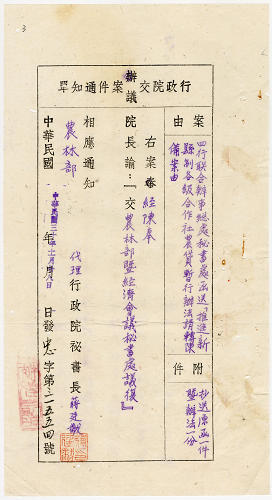 行政院交辦議案件通知單
案由
四行聯合辦事總處秘書處函送「推進新
縣制各級合作社農貸暫行辦法請轉陳
備案由
附件
抄送原函一件
暨辦法一份
右案奉經陳奉
院長諭：『交農林部暨經濟會議秘書處議復』
相應通知
農林部
代理行政院秘書長蔣廷黻
中華民國
中華民國三十年十二月
年 月 日發忠字第二一五五四號
3